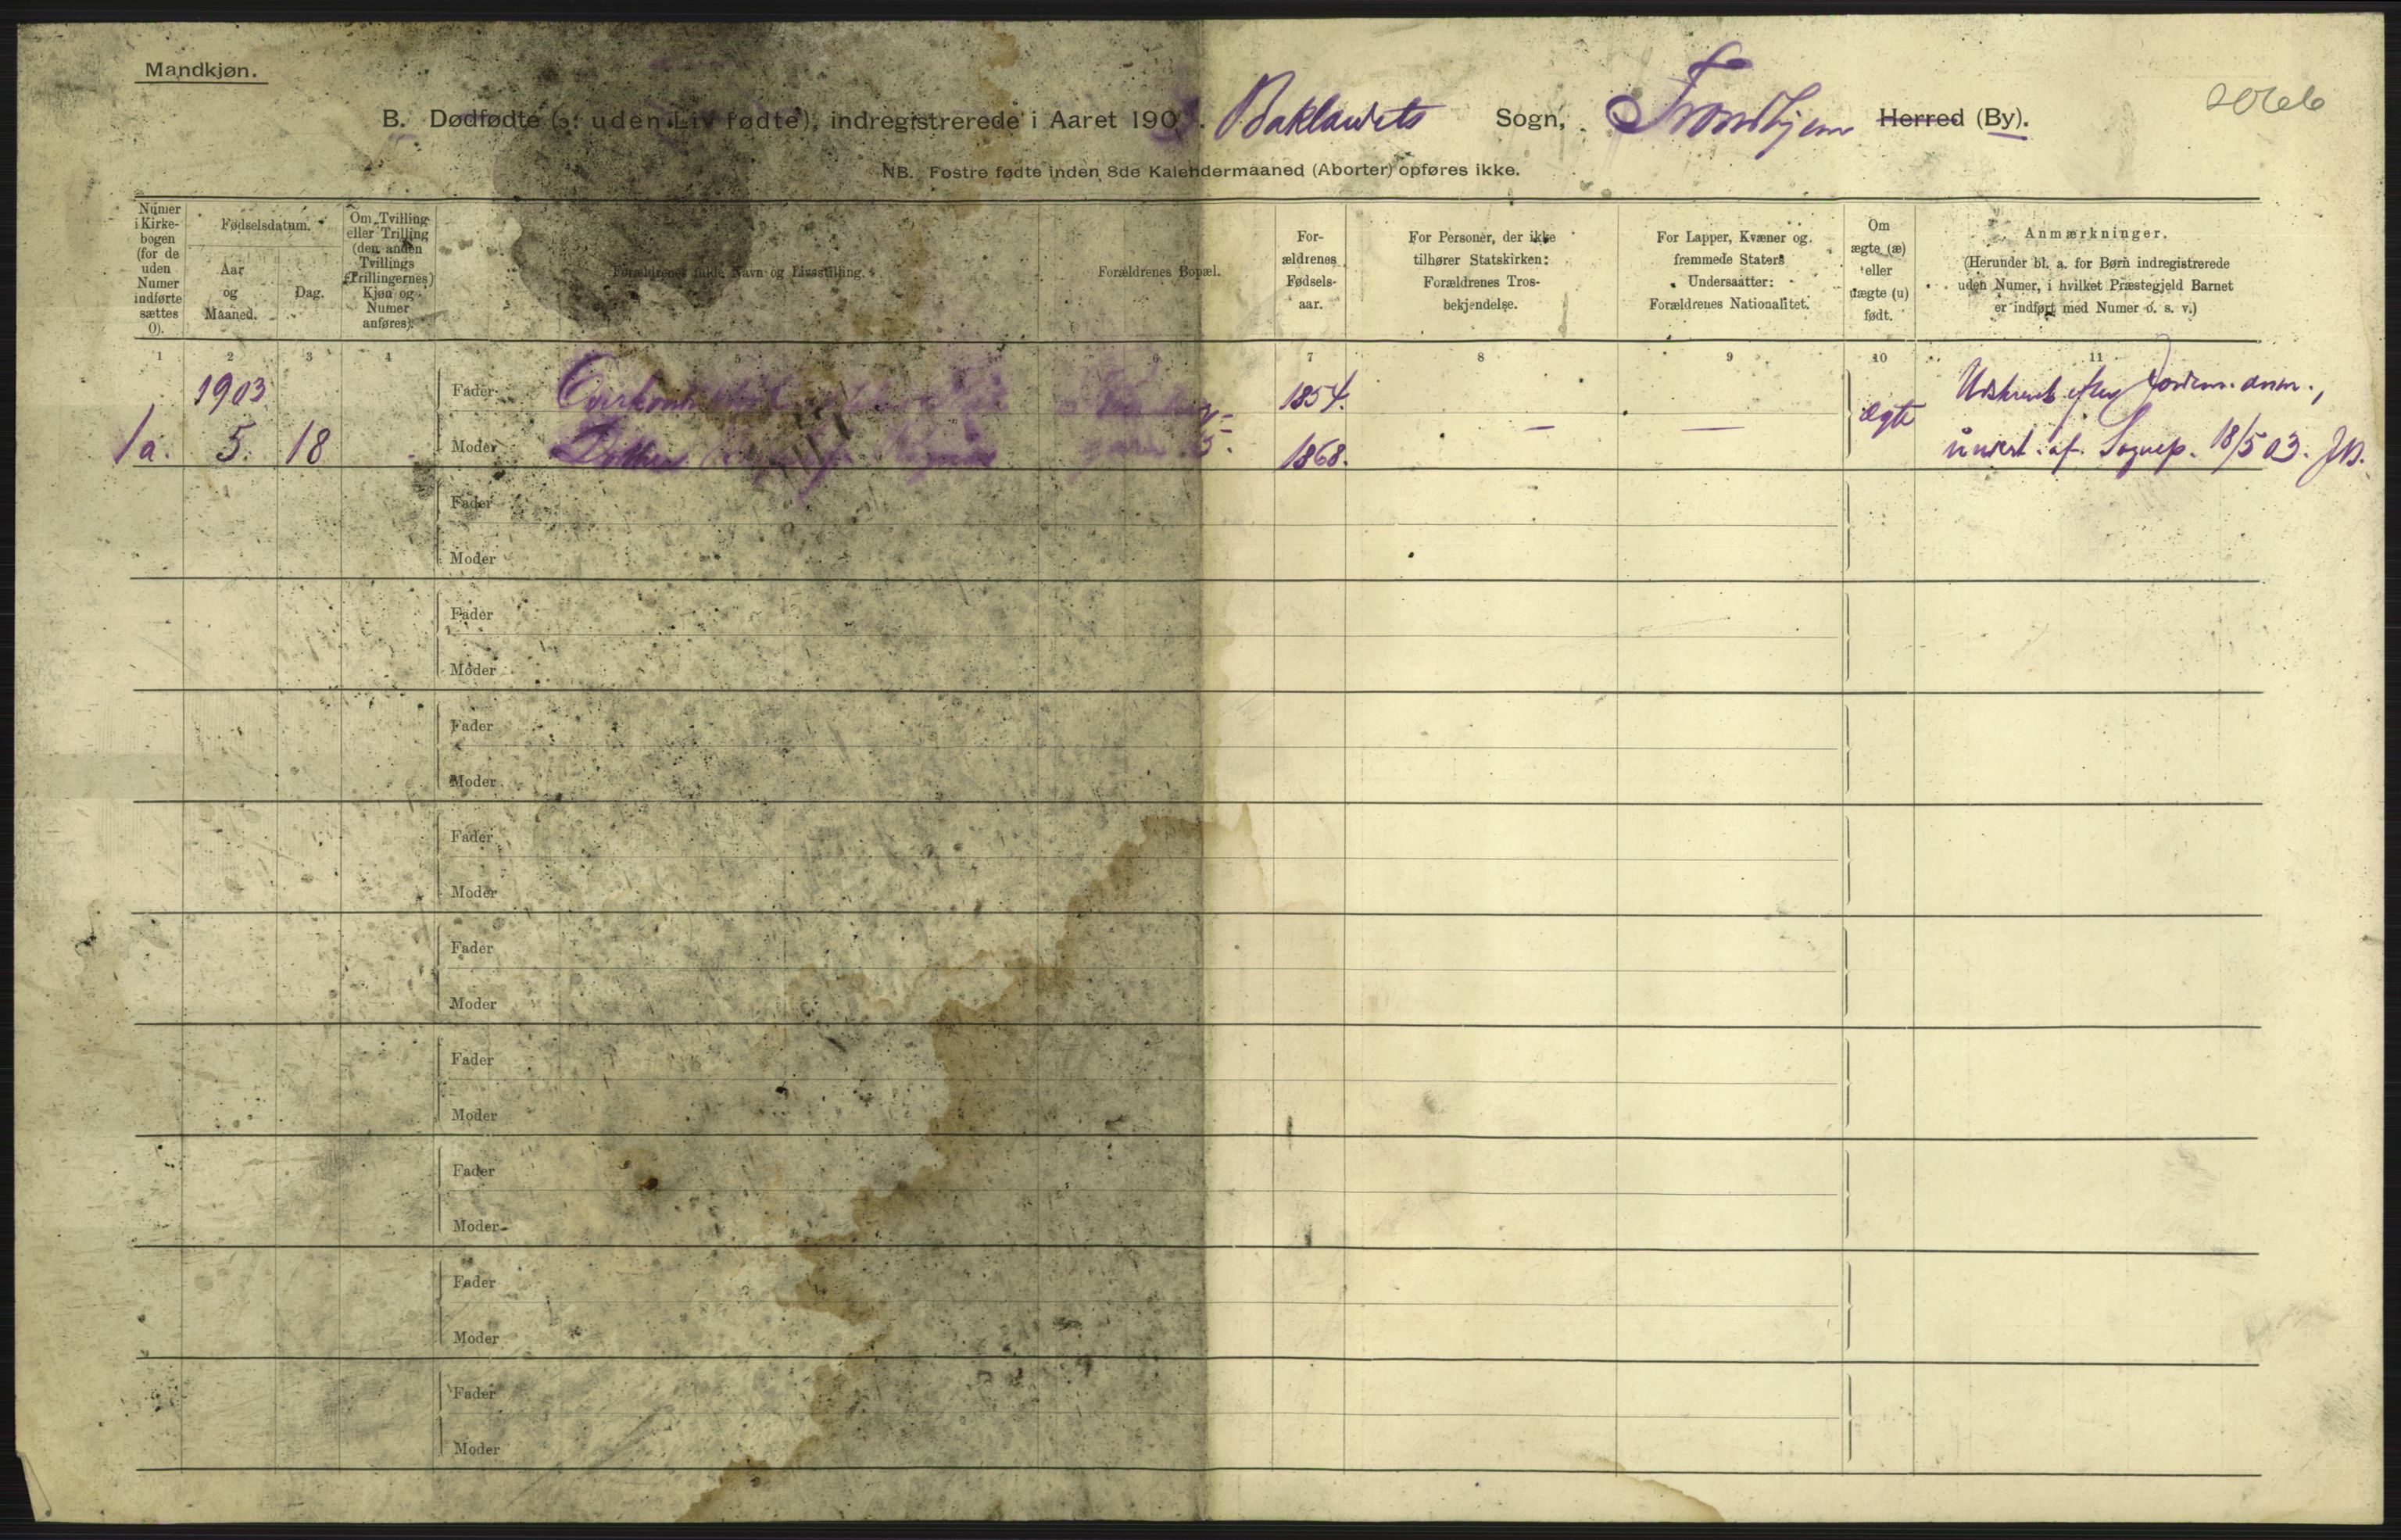 Mandkjøn.
B. Dødfødte (ɔ: uden Liv fødte), indregistrerede i Aaret 1903. Baklandets Sogn, Trondhjem Herred (By).
NB. Fostre fødte inden 8de Kalendermaaned (Aborter) opføres ikke.
Numer i Kirke-bogen (for de uden Numer indførte sættes 0).
Fødselsdatum.
Aar og Maaned.
Dag.
Om Tvilling eller Trilling (den anden Tvillings (Trillingernes) Kjøn og Numer anføres).
Forældrenes fulde Navn og Livsstilling.
Forældrenes Bopæl.
For-ældrenes Fødsels-aar.
For Personer, der ikke tilhører Statskirken: Forældrenes Tros-bekjendelse.
For Lapper, Kvæner og fremmede Staters Undersaatter: Forældrenes Nationalitet.
Om ægte (æ) eller uægte (u) født.
Anmærkninger.
(Herunder bl. a. for Børn indregistrerede uden Numer, i hvilket Præstegjeld Barnet er indført med Numer o. s. v.)
1 2 3 4 5 6 7 8 9 10 11
1903 Fader 1854. ægte
1a. 5. 18 - Moder 1868. — — af Sognep. 18/5 03.
Fader
Moder
Fader
Moder
Fader
Moder
Fader
Moder
Fader
Moder
Fader
Moder
Fader
Moder
Fader
Moder
Fader
Moder